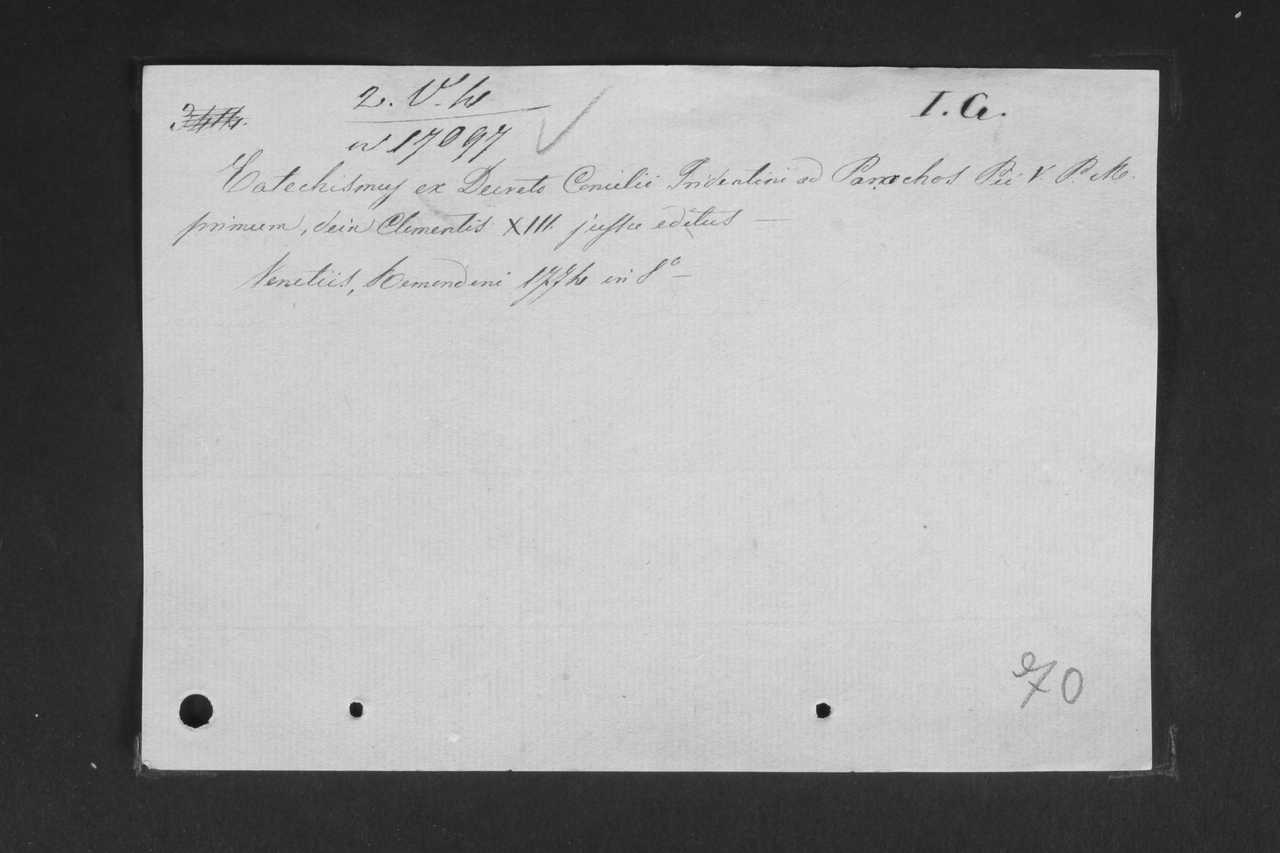 2. V. 4
n 17097
I. G.
Catechismus ex Decreto Concilii Tridentini ad Parochos Pii V. P. M.
primum, dein Clementis XIII. jussu editus —
Venetiis, Remondini 1774 in 8° —
70